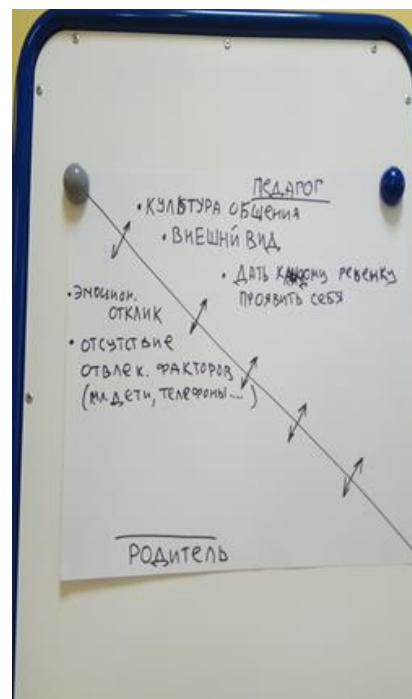 ПЕДАГОГ
• КУЛЬТУРА ОБЩЕНИЯ
• ВНЕШНИЙ ВИД
• ДАТЬ КАЖДОМУ РЕБЕНКУ
ПРОЯВИТЬ СЕБЯ
• ЭМОЦИОН.
ОТКЛИК
• ОТСУТСТВИЕ
ОТВЛЕК. ФАКТОРОВ
(МЛ ДЕТИ, ТЕЛЕФОНЫ....)
РОДИТЕЛЬ